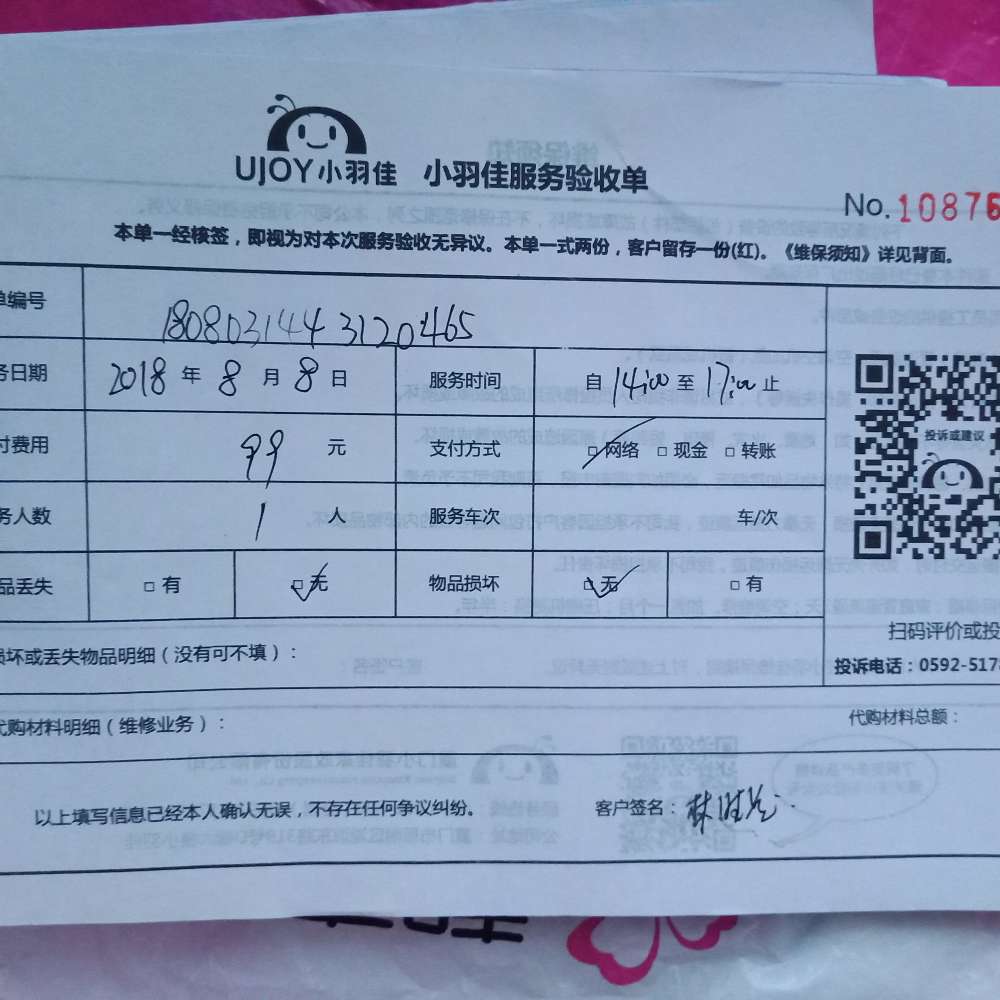 UJOY小羽佳 小羽佳服务验收单
No.10876
本单一经核签，即视为对本次服务验收无异议。本单一式两份，客户留存一份(红)。《维保须知》详见背面。
单编号 1808031443120465
务日期 2018 年 8 月 8 日 服务时间 自 14:00 至 17:00 止
付费用 99 元 支付方式 □网络 □现金 □转账
务人数 1 人 服务车次 车/次
品丢失 □有 □无 物品损坏 □无 □有
投诉或建议
扫码评价或投
投诉电话：0592-517
损坏或丢失物品明细（没有可不填）：
代购材料明细（维修业务）： 代购材料总额：
以上填写信息已经本人确认无误，不存在任何争议纠纷。 客户签名：林